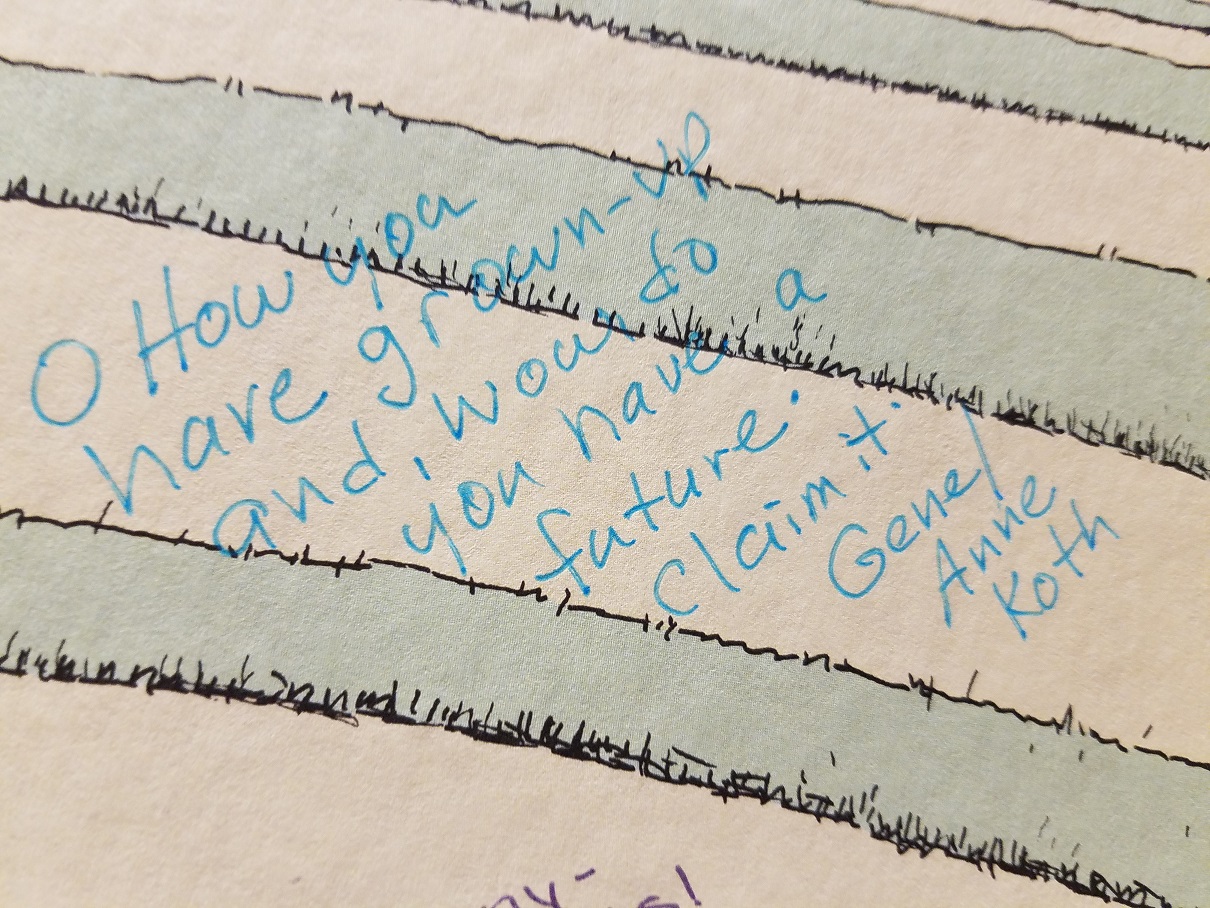 O How you
have grown-up
and, wow do
you have a
future!
Claim it!
Gene/
Anne
Koth